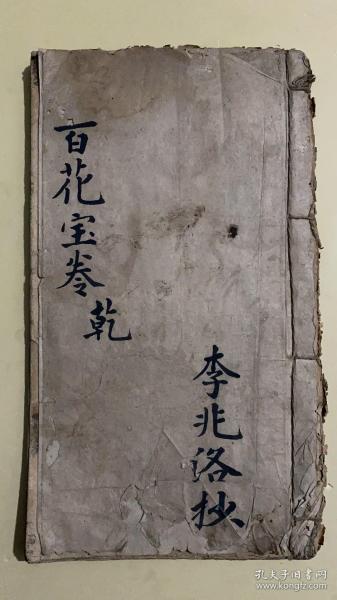 百花宝卷
乾
李兆洛抄
孔夫子旧书网